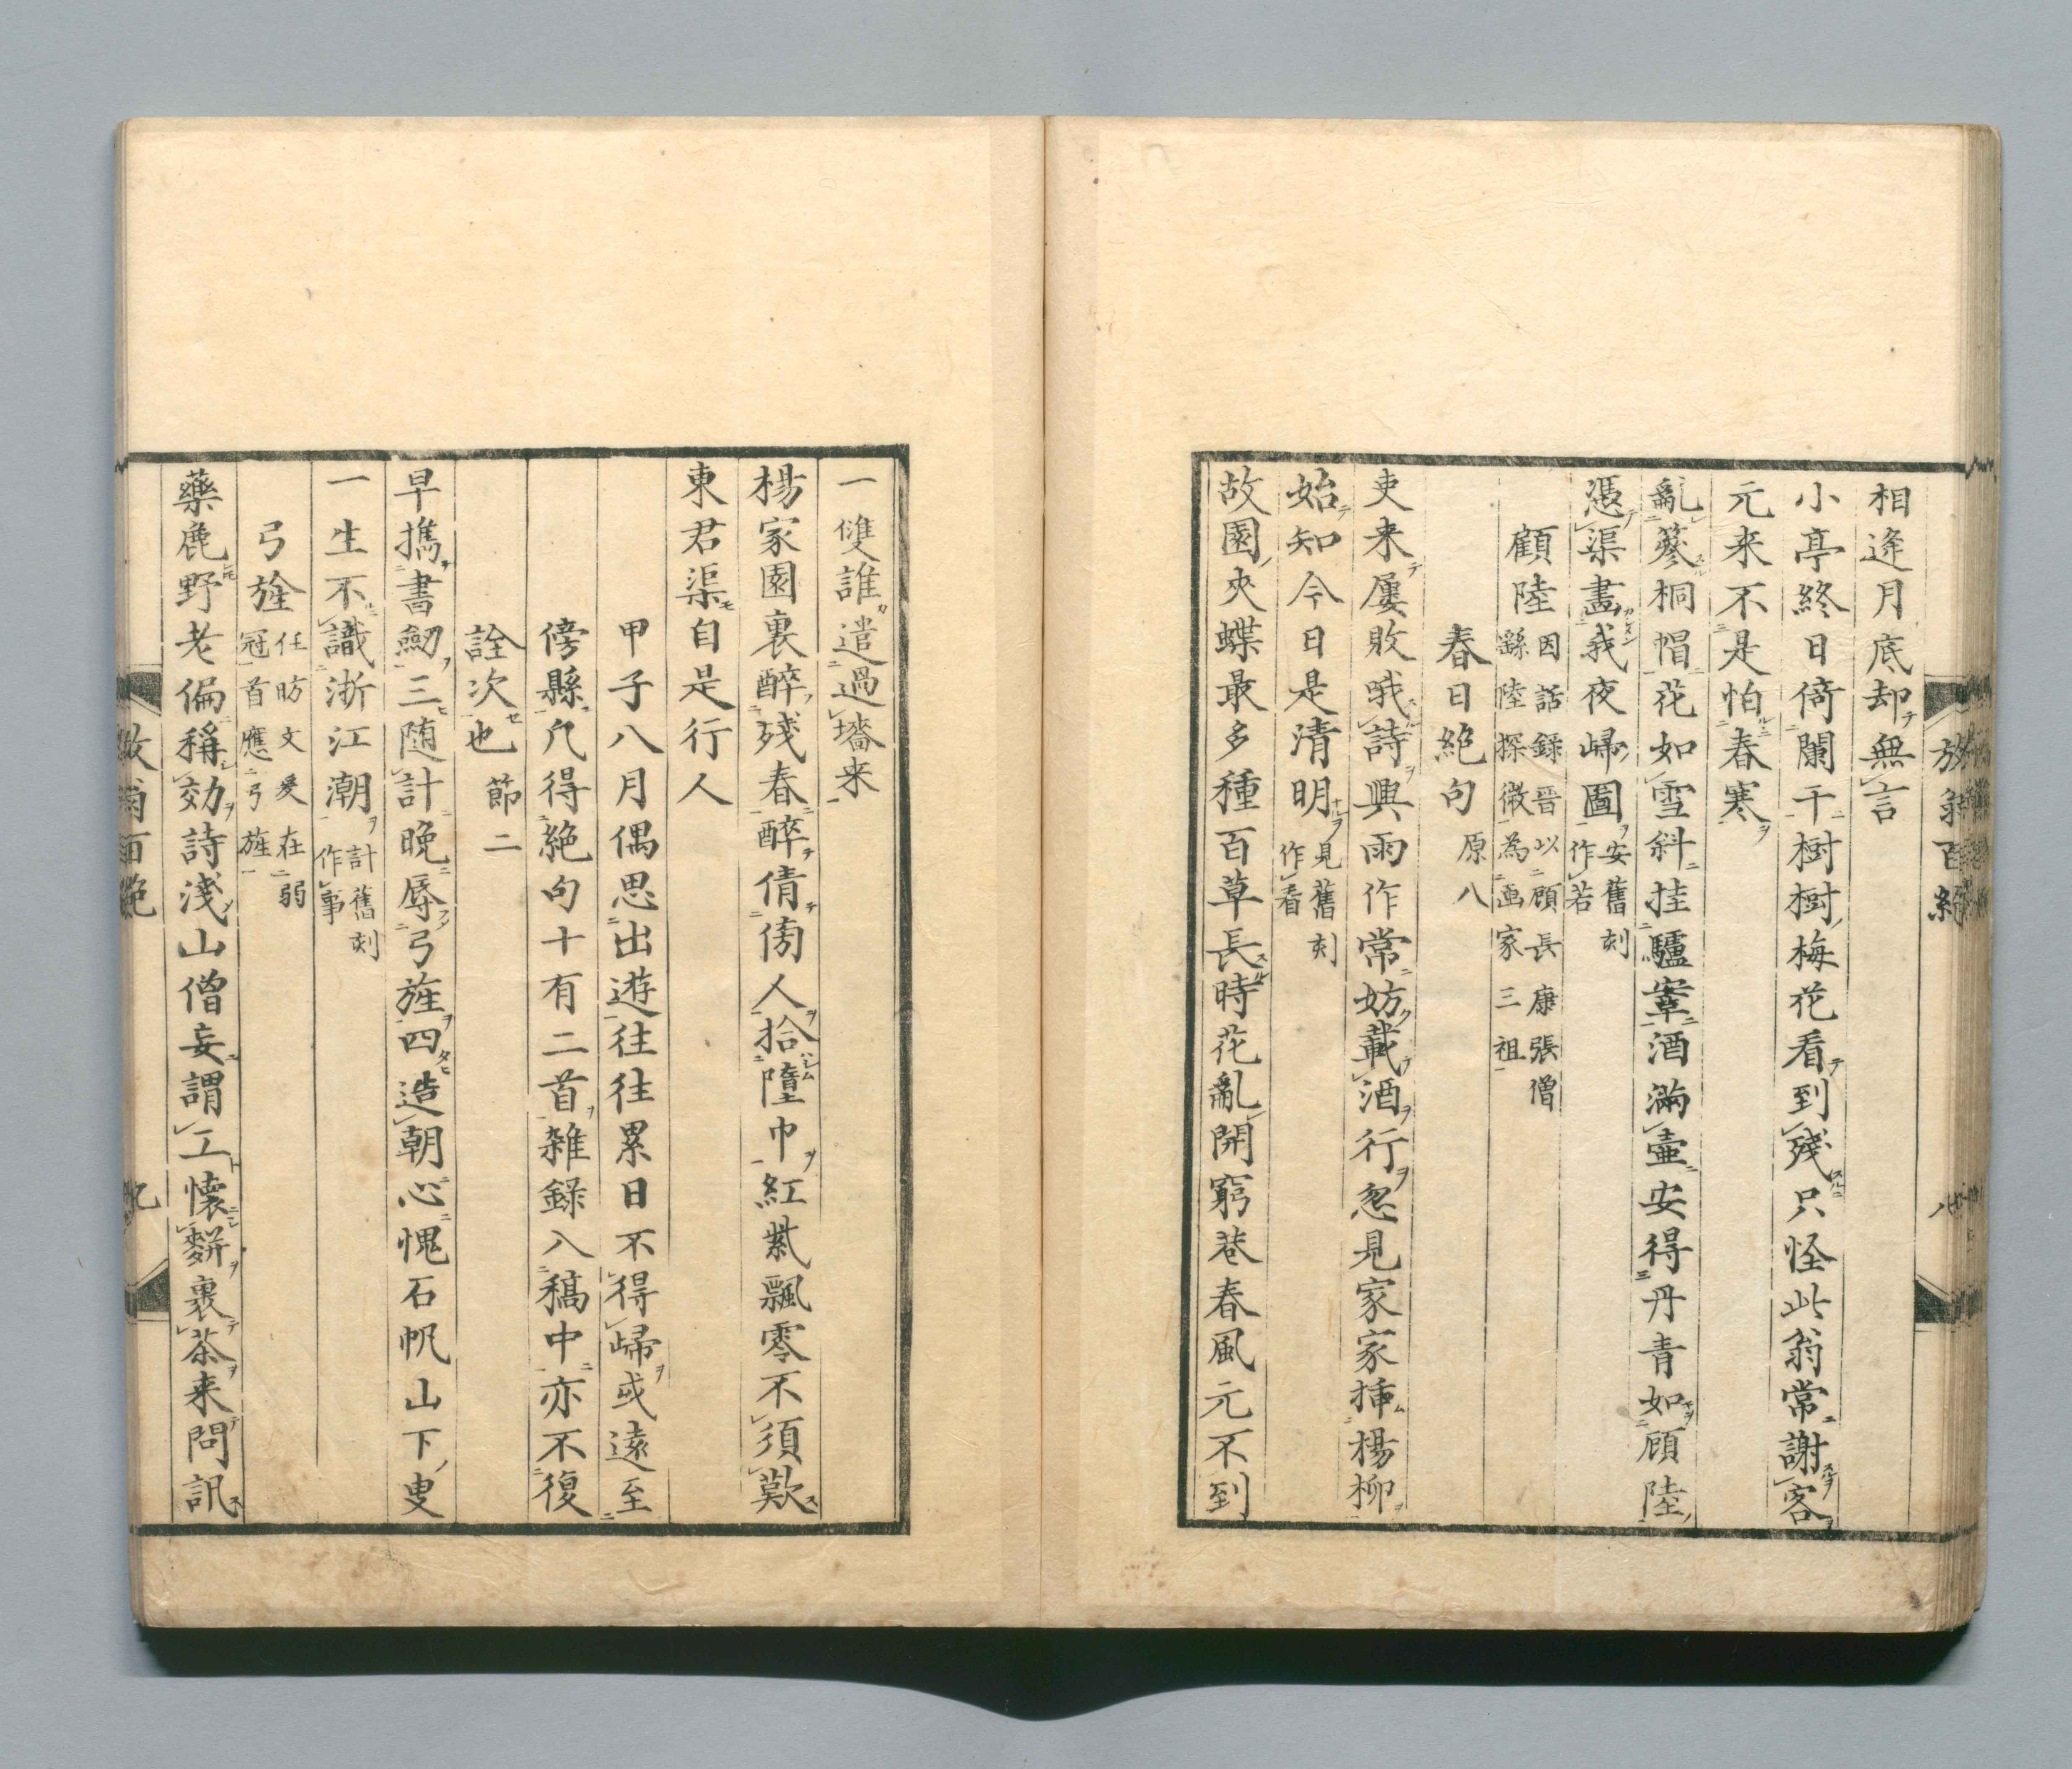 相逢月底却無言
小亭終日倚闌干樹樹梅花看到殘只怪此翁常謝客
元来不是怕春寒
亂篸桐帽花如雪斜挂驢鞌酒滿壷安得丹青如顧陸
憑渠畫我夜歸圖安舊刻作若
顧陸因話録晉以顧長康張僧繇陸探微為画家三祖
春日絶句原八
吏来屢敗哦詩興雨作常妨載酒行忽見家家揷楊柳
始知今日是清明見舊刻作看
故園夾蝶最多種百草長時花亂開窮巷春風元不到
放翁百絶
八
一雙誰遣過墻来
楊家園裏醉殘春醉倩傍人拾墮巾紅紫飄零不須歎
東君渠自是行人
甲子八月偶思出遊往往累日不得歸或遠至
傍縣凢得絶句十有二首雜録入稿中亦不復
詮次也節二
早攜書劒三随計晩辱弓旌四造朝心愧石帆山下叟
一生不識浙江潮計舊刻作事
弓旌任昉文爰在弱冠首應弓旌
藥鹿野老偏稱効詩淺山僧妄謂工懷餅裹茶来問訊